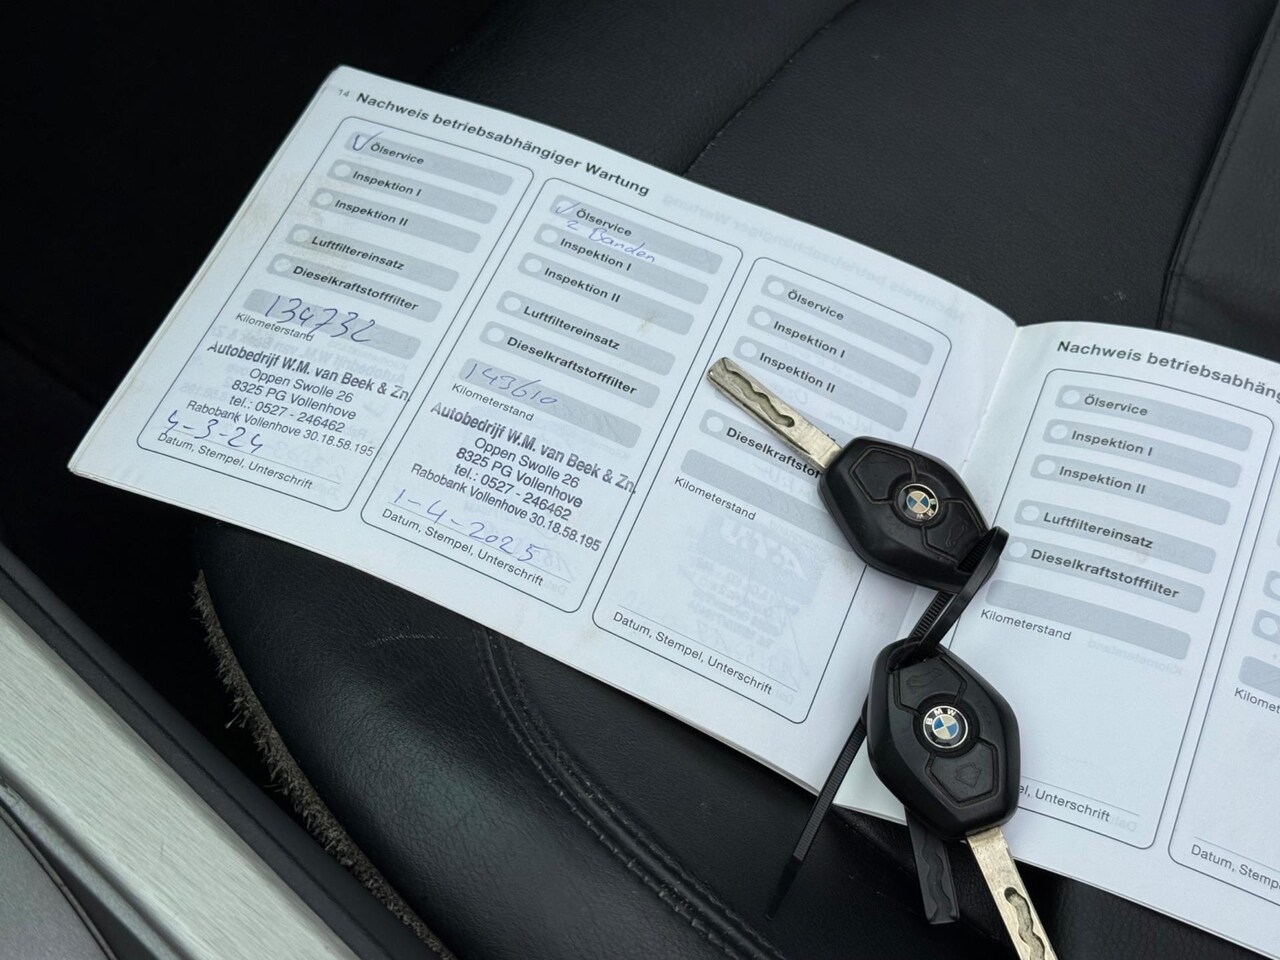 14 Nachweis betriebsabhängiger Wartung
✓ Ölservice
Inspektion I
Inspektion II
Luftfiltereinsatz
Dieselkraftstofffilter
134732
Kilometerstand
Autobedrijf W.M. van Beek & Zn.
Oppen Swolle 26
8325 PG Vollenhove
tel.: 0527 - 246462
Rabobank Vollenhove 30.18.58.195
4-3-24
Datum, Stempel, Unterschrift
✓ Ölservice
2 Banden
Inspektion I
Inspektion II
Luftfiltereinsatz
Dieselkraftstofffilter
143610
Kilometerstand
Autobedrijf W.M. van Beek & Zn.
Oppen Swolle 26
8325 PG Vollenhove
tel.: 0527 - 246462
Rabobank Vollenhove 30.18.58.195
1-4-2025
Datum, Stempel, Unterschrift
Ölservice
Inspektion I
Inspektion II
Dieselkraftstof
Kilometerstand
Datum, Stempel, Unterschrift
BMW
BMW
Nachweis betriebsabhäng
Ölservice
Inspektion I
Inspektion II
Luftfiltereinsatz
Dieselkraftstofffilter
Kilometerstand
el, Unterschrift
Kilomet
Datum, Stemp